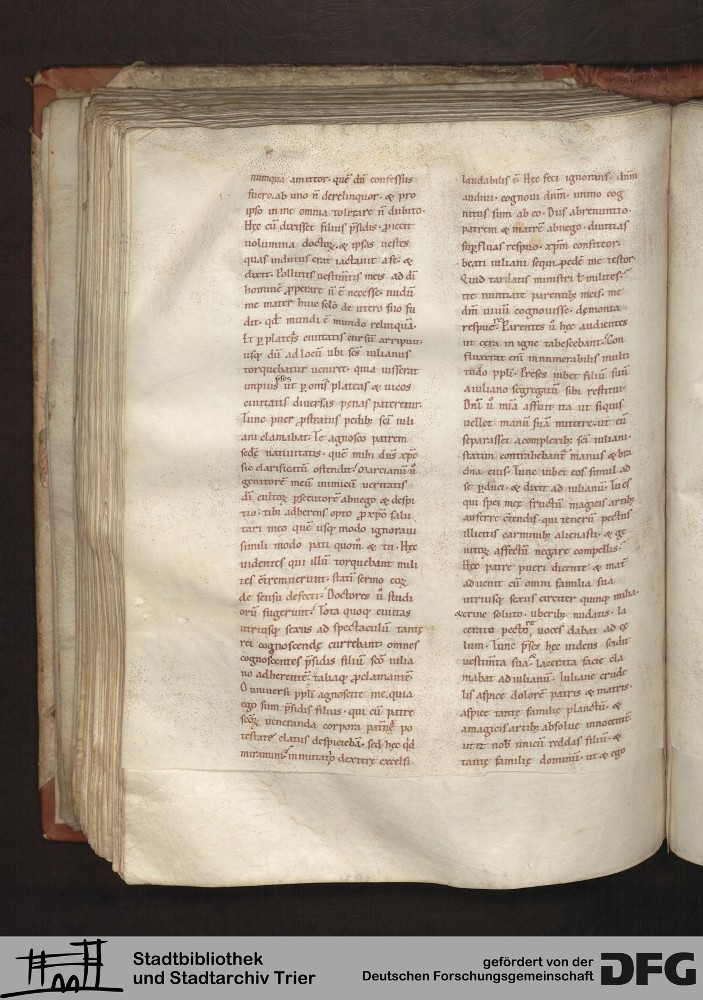 nunquā amittor. quē dū confessus
fuero. ab uno n̄ derelinquor. & pro
ipso in me omnia tolerare n̄ dubito.
Hęc cū dixisset filius p̄sidis. proiecit
uolumina doctoꝝ. & ipsas uestes
quas indutus erat iactauit a se. &
dixit. Pollutis uestim̄tis meis ad dī
hominē ꝓperare n̄ ē necesse. nudū
me mater huic sc̄lo de utero suo fu
dit. qd̄ mundi ē mundo relinquā.
Et ꝑ plateas ciuitatis cursū arripuit.
usq; dū ad locū ubi sc̄s iulianus
torquebatur ueniret. quia iusserat
impius p̄ses ut ꝑ om̄s plateas & uicos
ciuitatis diuersas pęnas pateretur.
Tunc puer ꝓstratus pedib; sc̄i iuli
ani clamabat. Te agnosco patrem
sedę natiuitatis. quē mihi dn̄s xp̄c
sic clarificatū ostendit. Marcianū ū
genitorē meū inimicū ueritatis
dī cultoꝝ ꝑsecutorē abnego & despi
tio. tibi adherens opto ꝓ xp̄o salu
tari meo quē usq; modo ignoraui
simili modo pati quom̄ & tu. Hęc
uidentes qui illū torquebant mili
tes c̄tremuerunt. statī sermo eoꝝ
de sensu defecit. Doctores ū studi
orū fugerunt. Tota quoq; ciuitas
utriusq; sexus ad spectaculū tantę
rei cognoscendę currebant. omnes
cognoscentes p̄sidis filiū sc̄o iulia
no adherentē. taliaq; ꝓclamantē.
O uniuersi pp̄li agnoscite me. quia
ego sum p̄sidis filius. qui cū patre
sc̄oꝝ ueneranda corpora patnę po
testate elatus despiciebā. sed hęc qd̄
miramini. inmutatio dexterę excelsi
laudabilis ē. Hęc feci ignorans. dn̄m
audiui. cognoui dn̄m. immo cog
nitus sum ab eo. Diis abrenuntio.
patrem & matrē abnego. diuitias
suꝑfluas respuo. xp̄m confiteor.
beati iuliani sequi pedē me testor.
Quid tardatis ministri ł milites.
ite nuntiate parentib; meis. me
dm̄ uiuū cognouisse. demonia
respue. Parentes ū hęc audientes
ut cera in igne tabescebant. Con
fluxerat enī innumerabilis multi
tudo pp̄li. Preses iubet filiū suū
a iuliano segregatū sibi restitui.
Dn̄i ū mīa affuit ita ut siquis
uellet manū suā mittere. ut eū
separasset a complexib; sc̄i iuliani.
statim contrahebant̄ manus & bra
chia eius. Tunc iubet eos simul ad
se ꝑduci. & dixit ad iulianū. Tu es
qui spei meę fructū magicis artib;
auferre c̄tendis. qui tenerū pectus
illicitis carminib; alienasti. & ge
nitoꝝ affectū negare compellis.
Hęc patre pueri dicente & mat̄
aduenit cū omni familia sua
utriusq; sexus circiter quinq; milia.
& crine soluto. uberib; nudatis. la
cerato pectore uoces dabat ad cę
lum. Tunc p̄ses hęc uidens scidit
uestim̄ta sua. & lacerata facie cla
mabat ad iulianū. Iuliane crude
lis aspice dolorē patris & matris.
aspice tantę familię planctū. &
a magicis artib; absolue innocentē
ut & nob̄ unicū reddas filiū. &
tantę familię dominū. ut & ego
Stadtbibliothek
und Stadtarchiv Trier
gefördert von der
Deutschen Forschungsgemeinschaft
DFG